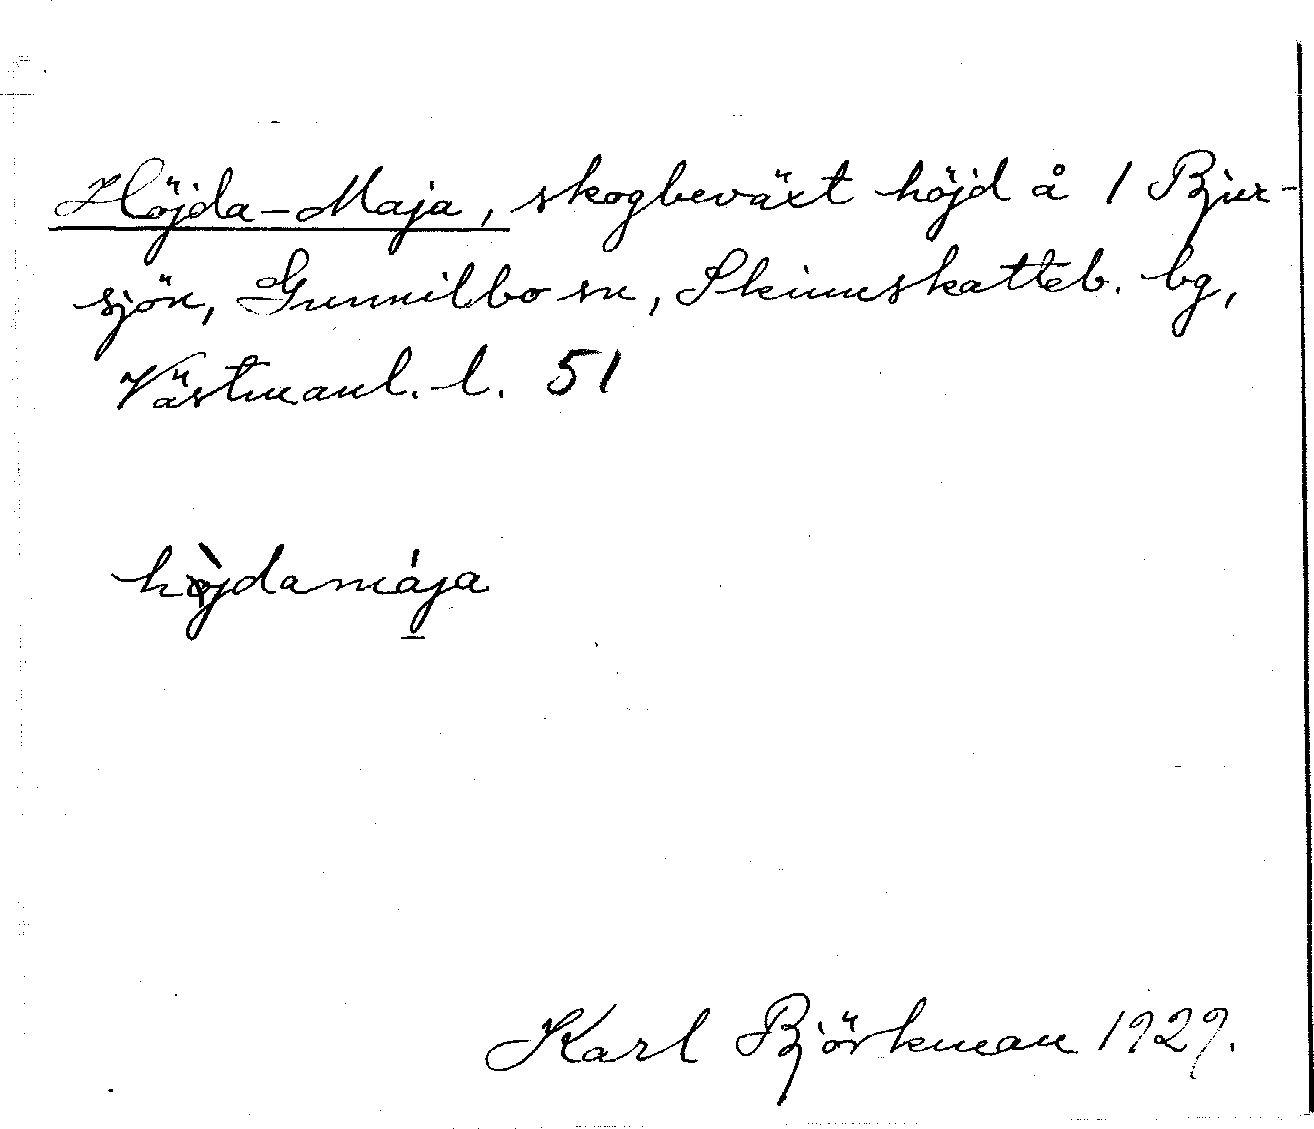 Höjda-Maja, skogbeväxt höjd å 1 Bjur-
sjön, Gunnilbo sn, Skinnskatteb. bg,
Västmanl. l. 51
hø̀jdamája
Karl Björkman 1929.